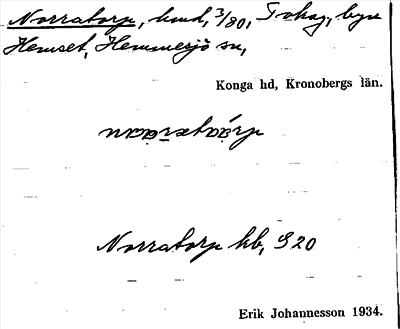 Norratorp, hmd, 3/80, I oskg, byn
Hemset, Hemmesjö sn,
Konga hd, Kronobergs län.
Norratorp hb, S 20
Erik Johannesson 1934.